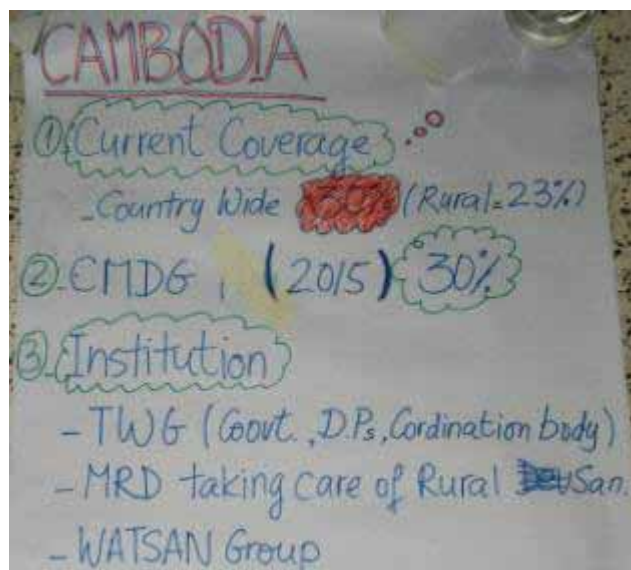 CAMBODIA
① Current Coverage
- Country Wide 30% (Rural=23%)
② CMDG (2015) 30%
③ Institution
- TWG (Govt., D.Ps, Cordination body)
- MRD taking care of Rural San.
- WATSAN Group